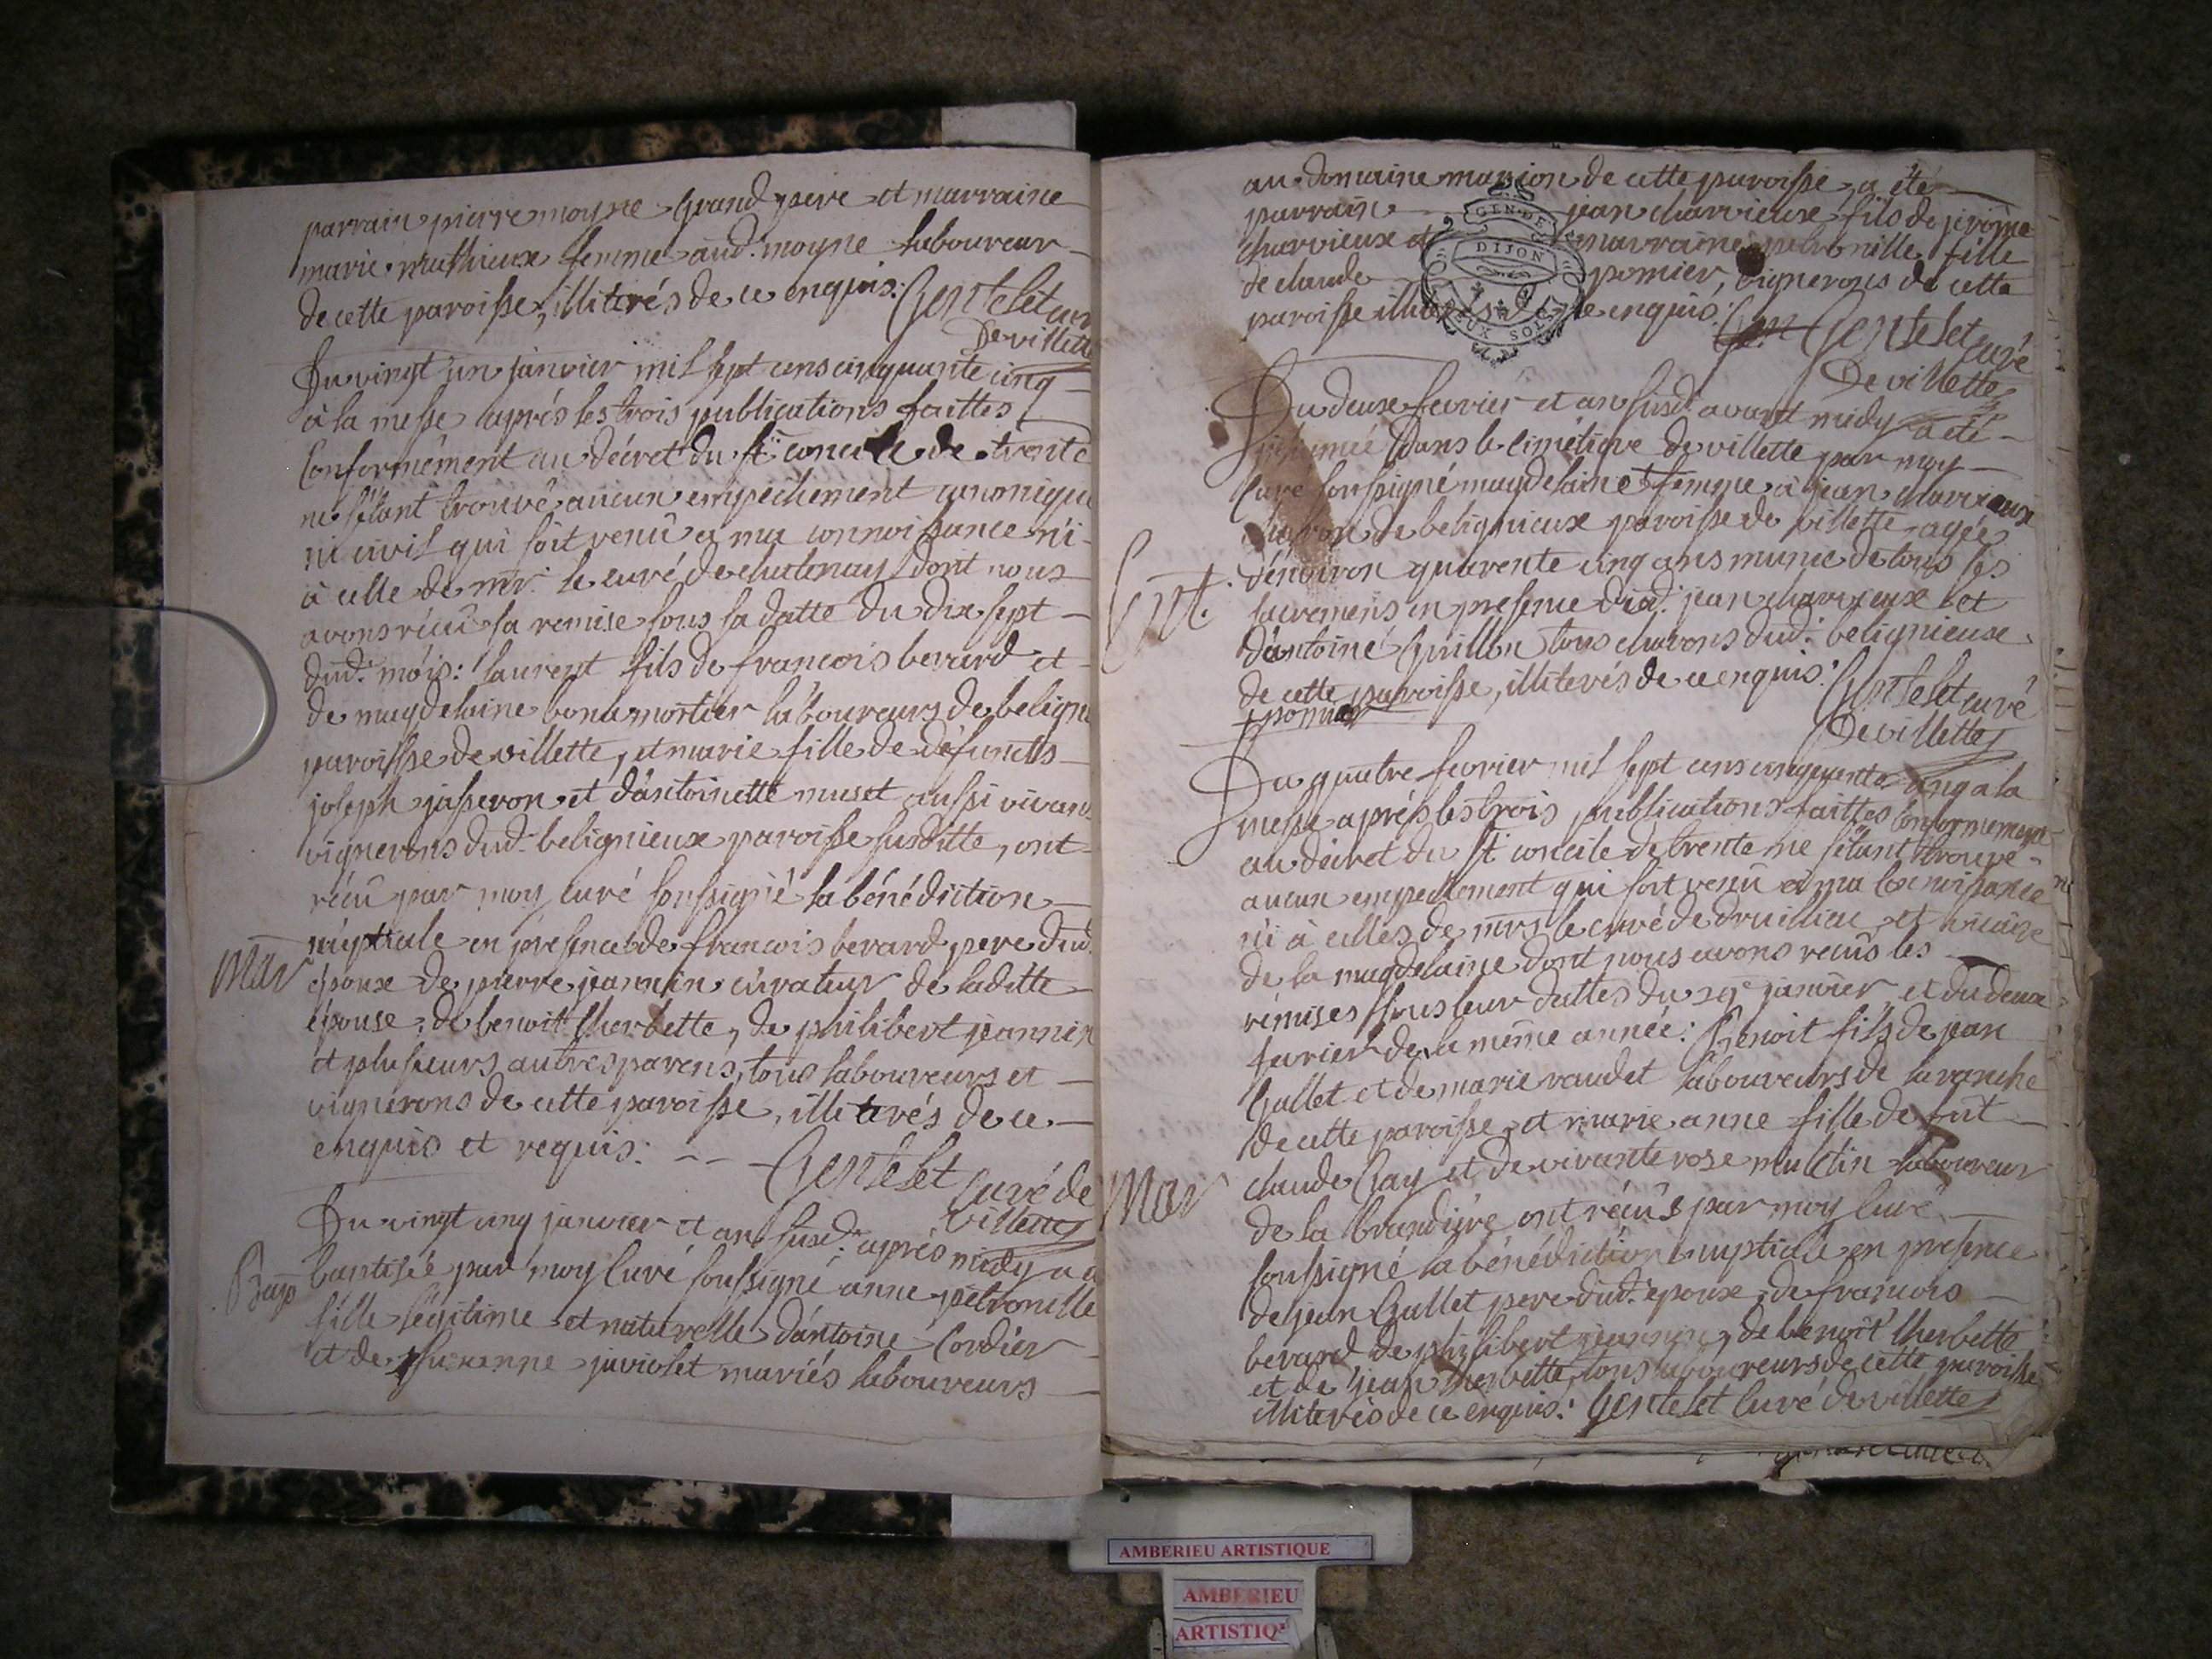 parrain pierre moyne grand pere et marraine
marie mathieux femme aud. moyne laboureur
de cette paroisse, illiterés de ce enquis: Gentelet curé
De villette
Du vingt un janvier mil sept cens cinquante cinq
à la messe aprés les trois publications faittes
Conformément au décret du st concile de trente
ne s'étant trouvé aucun empechement canonique
ni civil qui soit venû a ma connoissance ni
à celle de mr. le curé de chatenay dont nous
avons réçû la remise sous la datte du dix sept
dud. mois: laurent fils de francois berard et
de magdelaine bonamortier laboureurs de beligni
paroisse de villette, et marie fille de défuncts
joseph jasseron et d'antoinette muset aussi vivans
vignerons dud. belignieux paroisse susditte, ont
réçû par moy curé soussigné la bénédiction
Mar nuptiale en présence de francois berard pere dud.
epoux de pierre jeannin curateur de laditte
épouse, de benoit therbette, de philibert jeannin
et plusieurs autres parens, tous laboureurs et
vignerons de cette paroisse, illiterés de ce
enquis et requis: Gentelet curé de
villette
Du vingt cinq janvier et an susd. aprés midy a été
Bap baptisée par moy curé soussigné anne petronille
fille légitime et naturelle d'antoine Cordier
et de susanne javiolet mariés laboureurs
au domaine marion de cette paroisse, a été
parrain jean charvieux fils de jerome
charvieux et marraine petronille fille
de claude pomier, vignerons de cette
paroisse illiterés de ce enquis. Gentelet curé
De villette
GEN. DE
DIJON
DEUX SOLS
Du deux fevrier et an susd. avant midy a été
inhumée dans le cimétiere de villette par moy
Curé soussigné magdelaine + femme à jean charvieux
charon de belignieux paroisse de villette agée
Ent. d'environ quarente cinq ans munie de tous les
sacremens en presence dud. jean charvieux et
d'antoine Guillon tous charons dud. belignieux
de cette paroisse, illiterés de ce enquis: Gentelet curé
+ pomier
De villette
Du quatre fevrier mil sept cens cinquante cinq a la
messe aprés les trois publications faittes conformement
au décret du st concile de trente ne s'étant trouvé
aucun empechement qui soit venû a ma Connoissance ni
ni à celles de mrs le curé de druillat et vicaire
de la magdelaine dont nous avons recûs les
rémises sous leur dattes du 29e janvier et du deux
fevrier de la même année: Benoit fils de jean
Gallet et de marie vaudet laboureurs de la ranche
de cette paroisse et marie anne fille de fut
claude Gay et de vivante rose mulctin laboureur
Mar de la brandiere ont réçûs par moy Curé
soussigné la bénédiction nuptiale en presence
de jean Gallet pere dud. epoux, de francois
berard de philibert jeannin, de benoit therbette
et de jean therbette, tous laboureurs de cette paroisse
illiterés de ce enquis: Gentelet Curé de villette
AMBERIEU ARTISTIQUE
AMBERIEU
ARTISTIQ